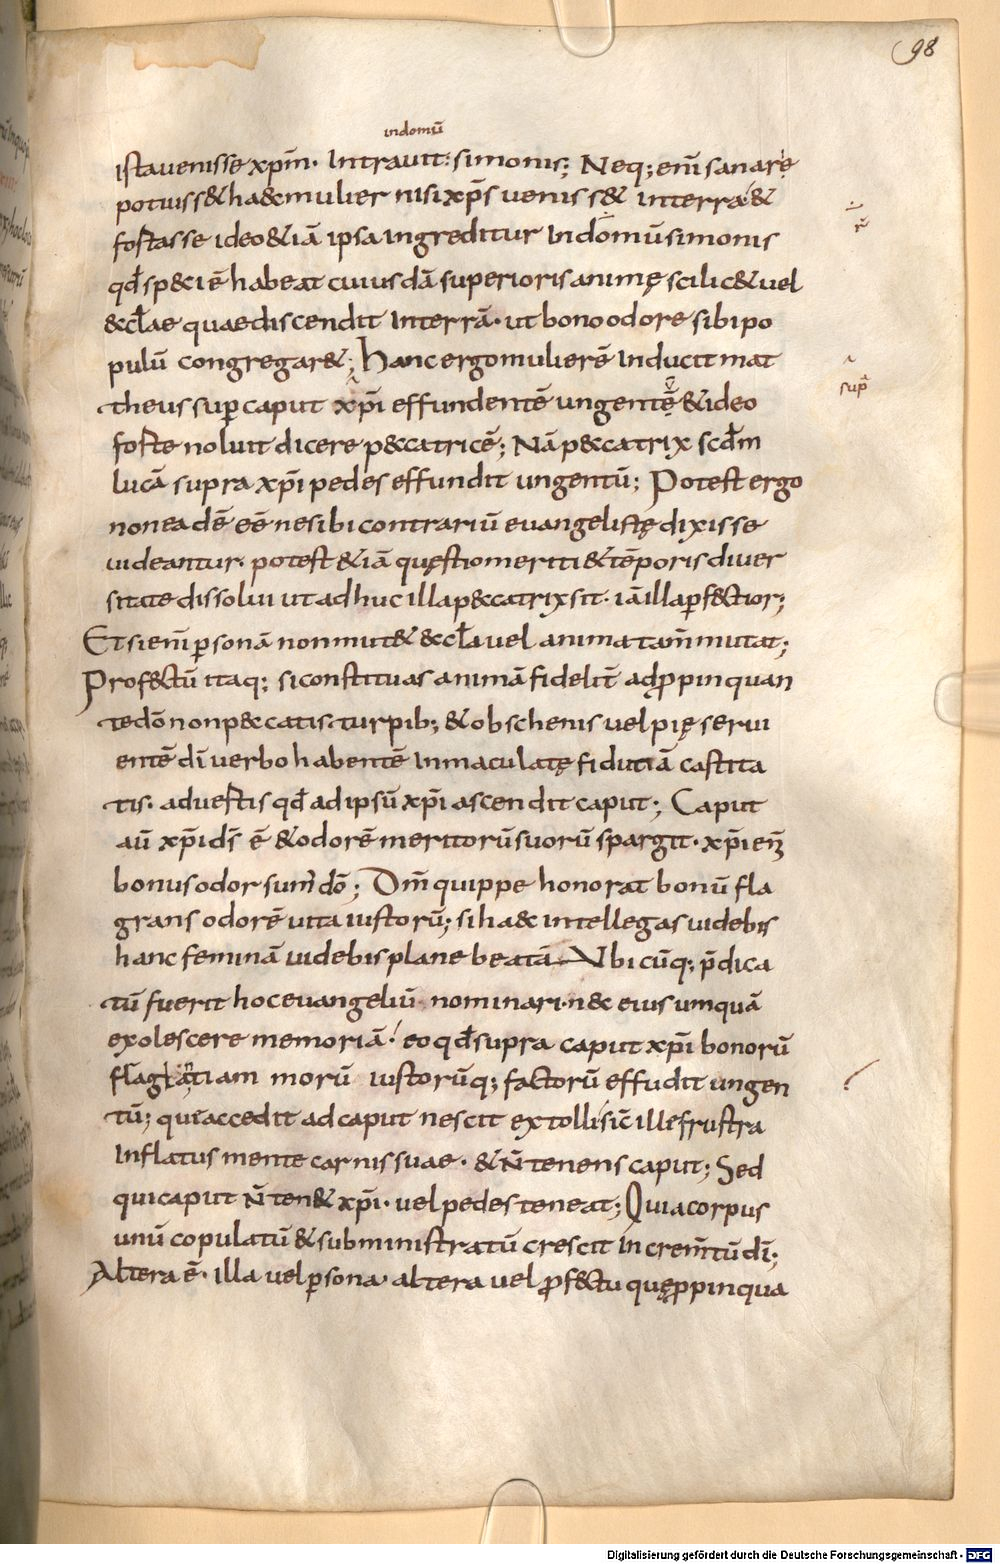 98
indomū
istavenisse xp̄m. Intravit: simonis; Neq; eni̅ sanare
potuiss& ha&c mulier nisi xp̄s veniss& interra &
fostasse ideo &iā ipsa ingreditur In domū simonis
qđ sp&iē habeat cuiusdā superioris animę scilic& vel
&cłae quae discendit interrā. ut bono odore sibi po
pulū congregar&; hanc ergo mulierē Inducit mat
theus sup caput xp̄i effundentē ungentē &ideo
foste noluit dicere p&catricē; Nā p&catrix scđm
lucā supra xp̄i pedes effundit ungentū; Potest ergo
non eadē eē ne sibi contrariū evangelistę dixisse
videantur. potest &iā quęstio meriti &tēporis diver
sitate dissolui ut adhuc illa p&catrix sit. iā illa pf&ctior;
Et si eni̅ psonā non mut& &cła vel anima tam̄ mutat;
Prof&ctū itaq; si constituas animā fidelit̄ adppinquan
tedō non p&catis turpib; & obschenis vel pię servi
entē dī verbo habentē Inmaculatę fidutiā castita
tis. advestis qđ ad ipsū xp̄i ascendit caput; Caput
aū xp̄i ds̄ ē &odorē meritorū suorū spargit. xp̄i enī
bonus odor sum' dō; Dm̄ quippe honorat bonū fla
grans odorē vita iustorū; si ha&c intellegas videbis
hanc feminā videbis plane beatā Ubicūq; p̄dica
tū fuerit hoc evangeliū nominari. n&c eius umquā
exolescere memoriā. eo qđ supra caput xp̄i bonorū
flagrātiam morū iustorūq; factorū effudit ungen
tū; qui accedit ad caput nescit extolli sic̄ ille frustra
Inflatus mente carnis suae. &n̄ tenens caput; Sed
qui caput n̄ ten& xp̄i. vel pedes teneat; Quia corpus
unū copulatū &subministratū crescit In crem̄tū dī;
Altera ē. illa vel psona. altera vel prof&ctu quę ppinqua
sup
Digitalisierung gefördert durch die Deutsche Forschungsgemeinschaft - DFG